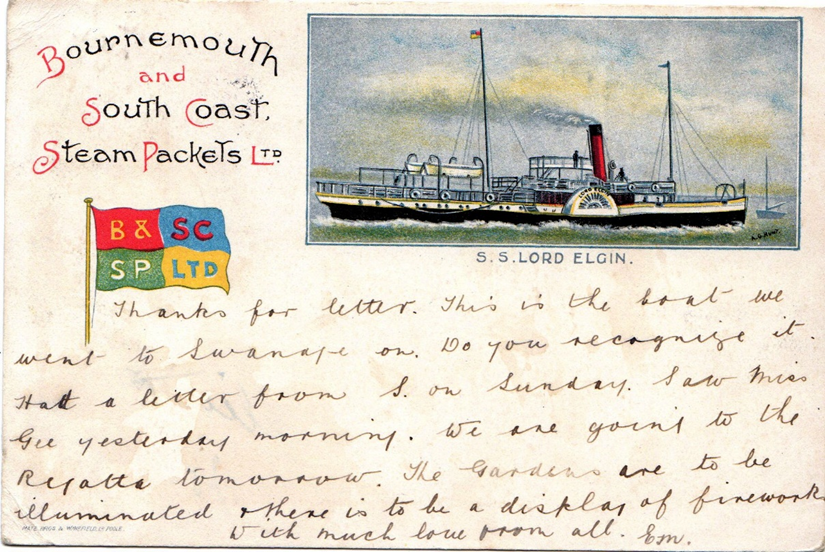 Bournemouth
and
South Coast,
Steam Packets LTD
B & SC
SP LTD
S.S. LORD ELGIN.
Thanks for letter. This is the boat we
went to Swanage on. Do you recognize it.
Had a letter from S. on Sunday. Saw Miss
Gee yesterday morning. We are going to the
Regatta tomorrow. The Gardens are to be
illuminated & there is to be a display of fireworks
With much love from all. Em.